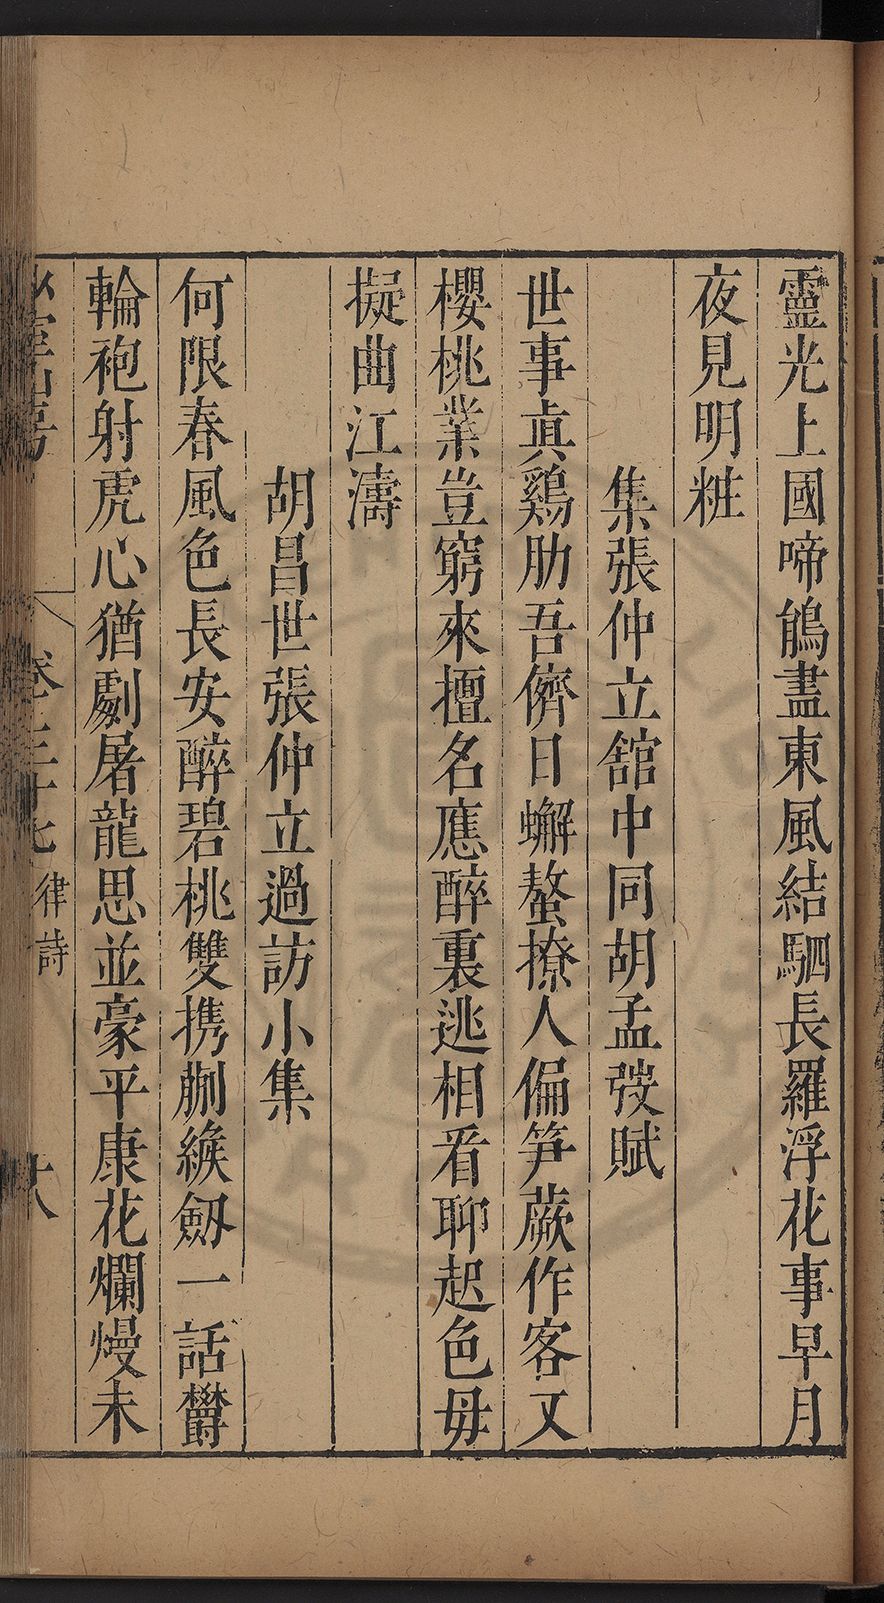 靈光上國啼鵃盡東風結駟長羅浮花事早月
夜見明粧
集張仲立舘中同胡孟弢賦
世事眞鷄肋吾儕日蠏螯撩人偏笋蕨作客又
櫻桃業豈窮來擅名應醉裏逃相看聊起色毋
擬曲江濤
胡昌世張仲立過訪小集
何限春風色長安醉碧桃雙携蒯緱劒一話欝
輪袍射虎心猶劇屠龍思並豪平康花爛熳未
卷三十七 律詩 十八